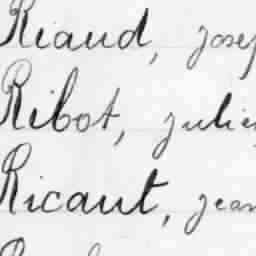 Riaud, josep
Ribot, julien
Ricaut, jean